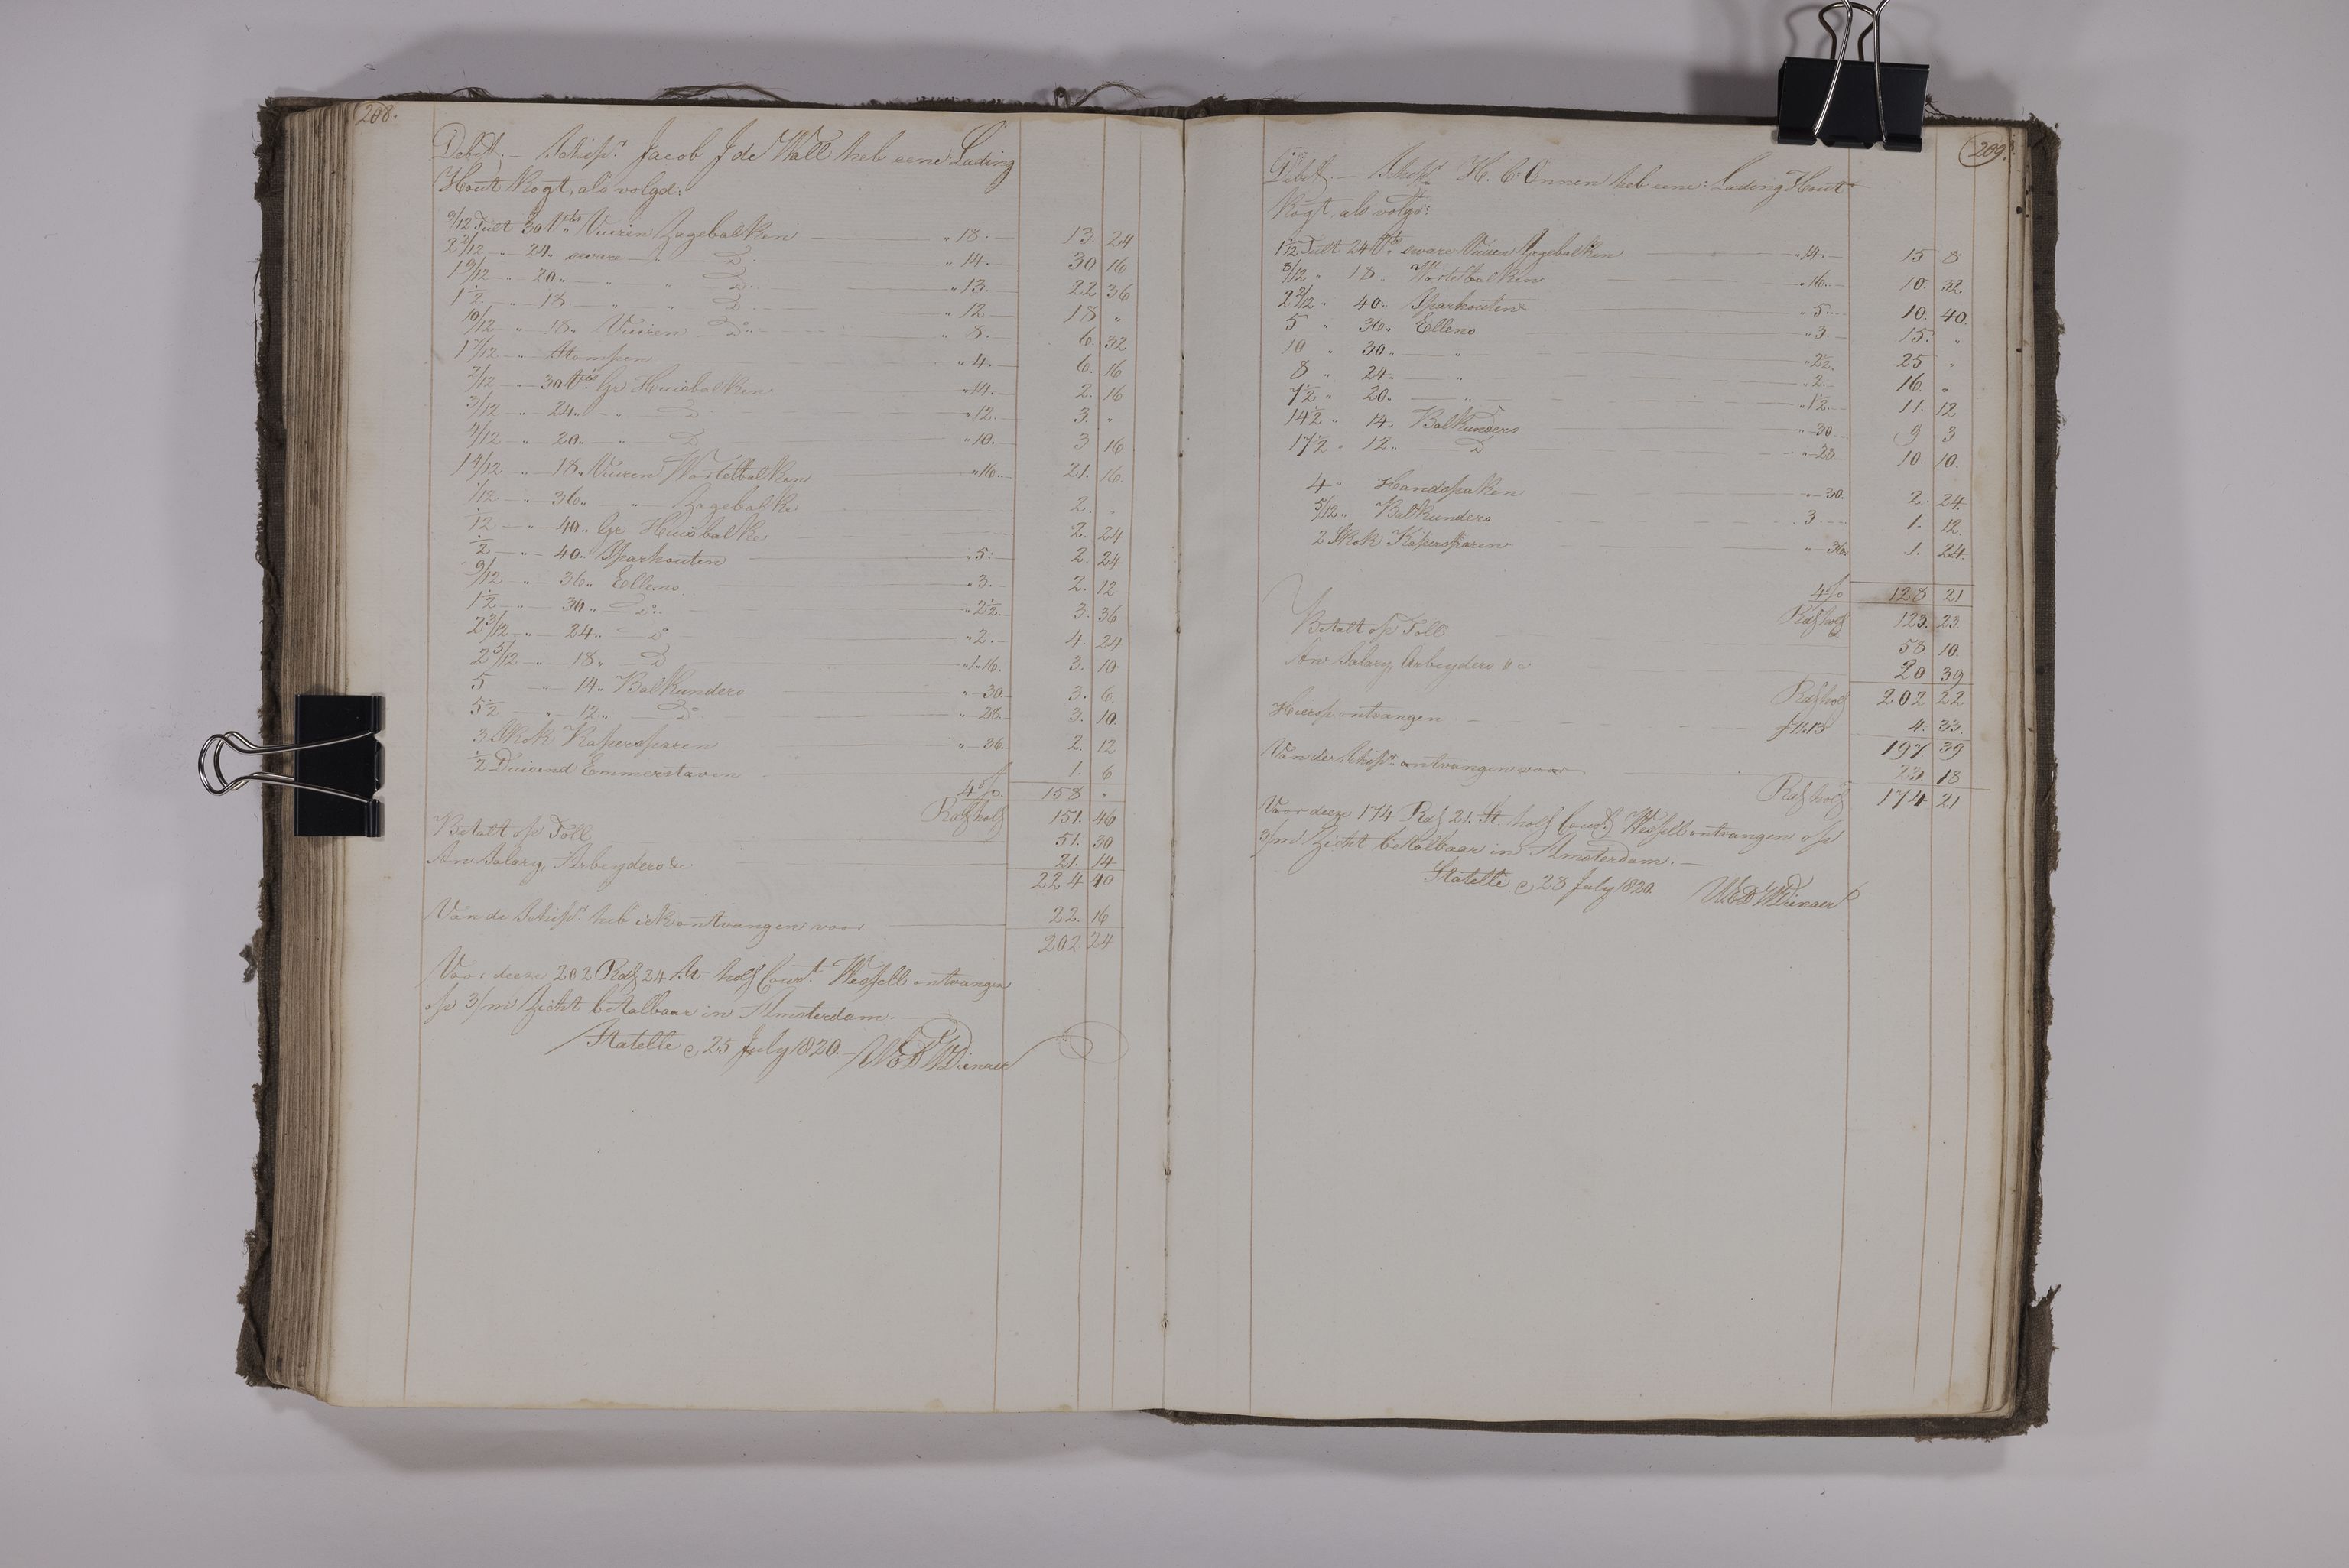 208.
Debet. — Schipr. Jacob J de Wall heb eene Lading
Hout kogt, als volgd:
9/12 Tult 30 Vts Vuiren Zagebalken " 18. 13. 24
2 2/12 " 24 " sware " Do. " 14. 30 16
1 9/12 " 20 " " " Do. " 13. 22 36
1 1/2 " 18 " " " Do. " 12 18 "
10/12 " 18 " Vuiren Do. " 8. 6. 32
1 7/12 " Stompen " 4. 6. 16
2/12 " 30 Vts. Gr Huisbalken " 14. 2. 16
3/12 " 24 " " Do " 12. 3. "
4/12 " 20 " " Do " 10. 3 16
1 4/12 " 18 " Vuiren Wortelbalken " 16. 21. 16.
1/12 " 36 " " Zagebalke 2. "
1/12 " 40 " Gr Huisbalke 2. 24
1/2 " 40 " Sparhouten " 5. 2. 24
9/12 " 36 " Ellens " 3. 2. 12
1 1/2 " 30 " Do. " 2 1/2. 3. 36
2 3/12 " 24 " Do " 2. 4. 24
2 5/12 " 18 " Do " 1.16. 3. 10
5 " 14 " Balkunders " 30. 3. 6.
5 1/2 " 12 " Do. " 28. 3. 10.
3 Skok Kapersparen " 36. 2. 12
1/2 Duisend Emmerstaven 1. 6
4 %. 158 "
Rds hols 151. 46
Betalt op Toll 51. 30
An Salary, Arbeyders &c 21. 14
224 40
Van de Schipr. heb ick ontvangen voor 22. 16
202. 24
Voor deeze 202 Rds 24 St. hols Court. Wessell ontvangen
op 3/m Zicht betalbaar in Amsterdam. —
Statelle 25 July 1820.
209.
Debet. — Schipr H. C Onnen heb eene Lading Hout
kogt, als volgd:
1 1/12 Tult 24 Vts. sware Vuiren Zagebalken " 14. 15 8
8/12 " 18 " Wortelbalken " 16. 10. 32.
2 2/12 " 40 " Sparhouten " 5. 10. 40.
5 " 36 " Ellens " 3. 15. "
10 " 30 " " " 2 1/2. 25 "
8 " 24 " " " 2. 16. "
7 1/2 " 20 " " " 1 1/2. 11. 12
14 1/2 " 14 " Balkunders " 30 9 3
17 1/2 " 12 " Do " 28 10. 10.
4 " Handspaken " 30. 2. 24.
5/12 " Balkunders 3 1. 12.
2 Skok Kapersparen " 36. 1. 24.
4 % 128 21
Rds hols 123. 23.
Betalt op Toll 58. 10.
An Salary, Arbeyders &c 20 39
Rds hols 202 22
Hierop ontvangen f 11.13 4. 33.
197 39
Van de Schipr. ontvangen voor 23. 18
Rds hols 174 21
Voor deeze 174 Rds 21. St. hols Court. Wessell ontvangen op
3/m Zicht betalbaar in Amsterdam. —
Statelle 28 July 1820.